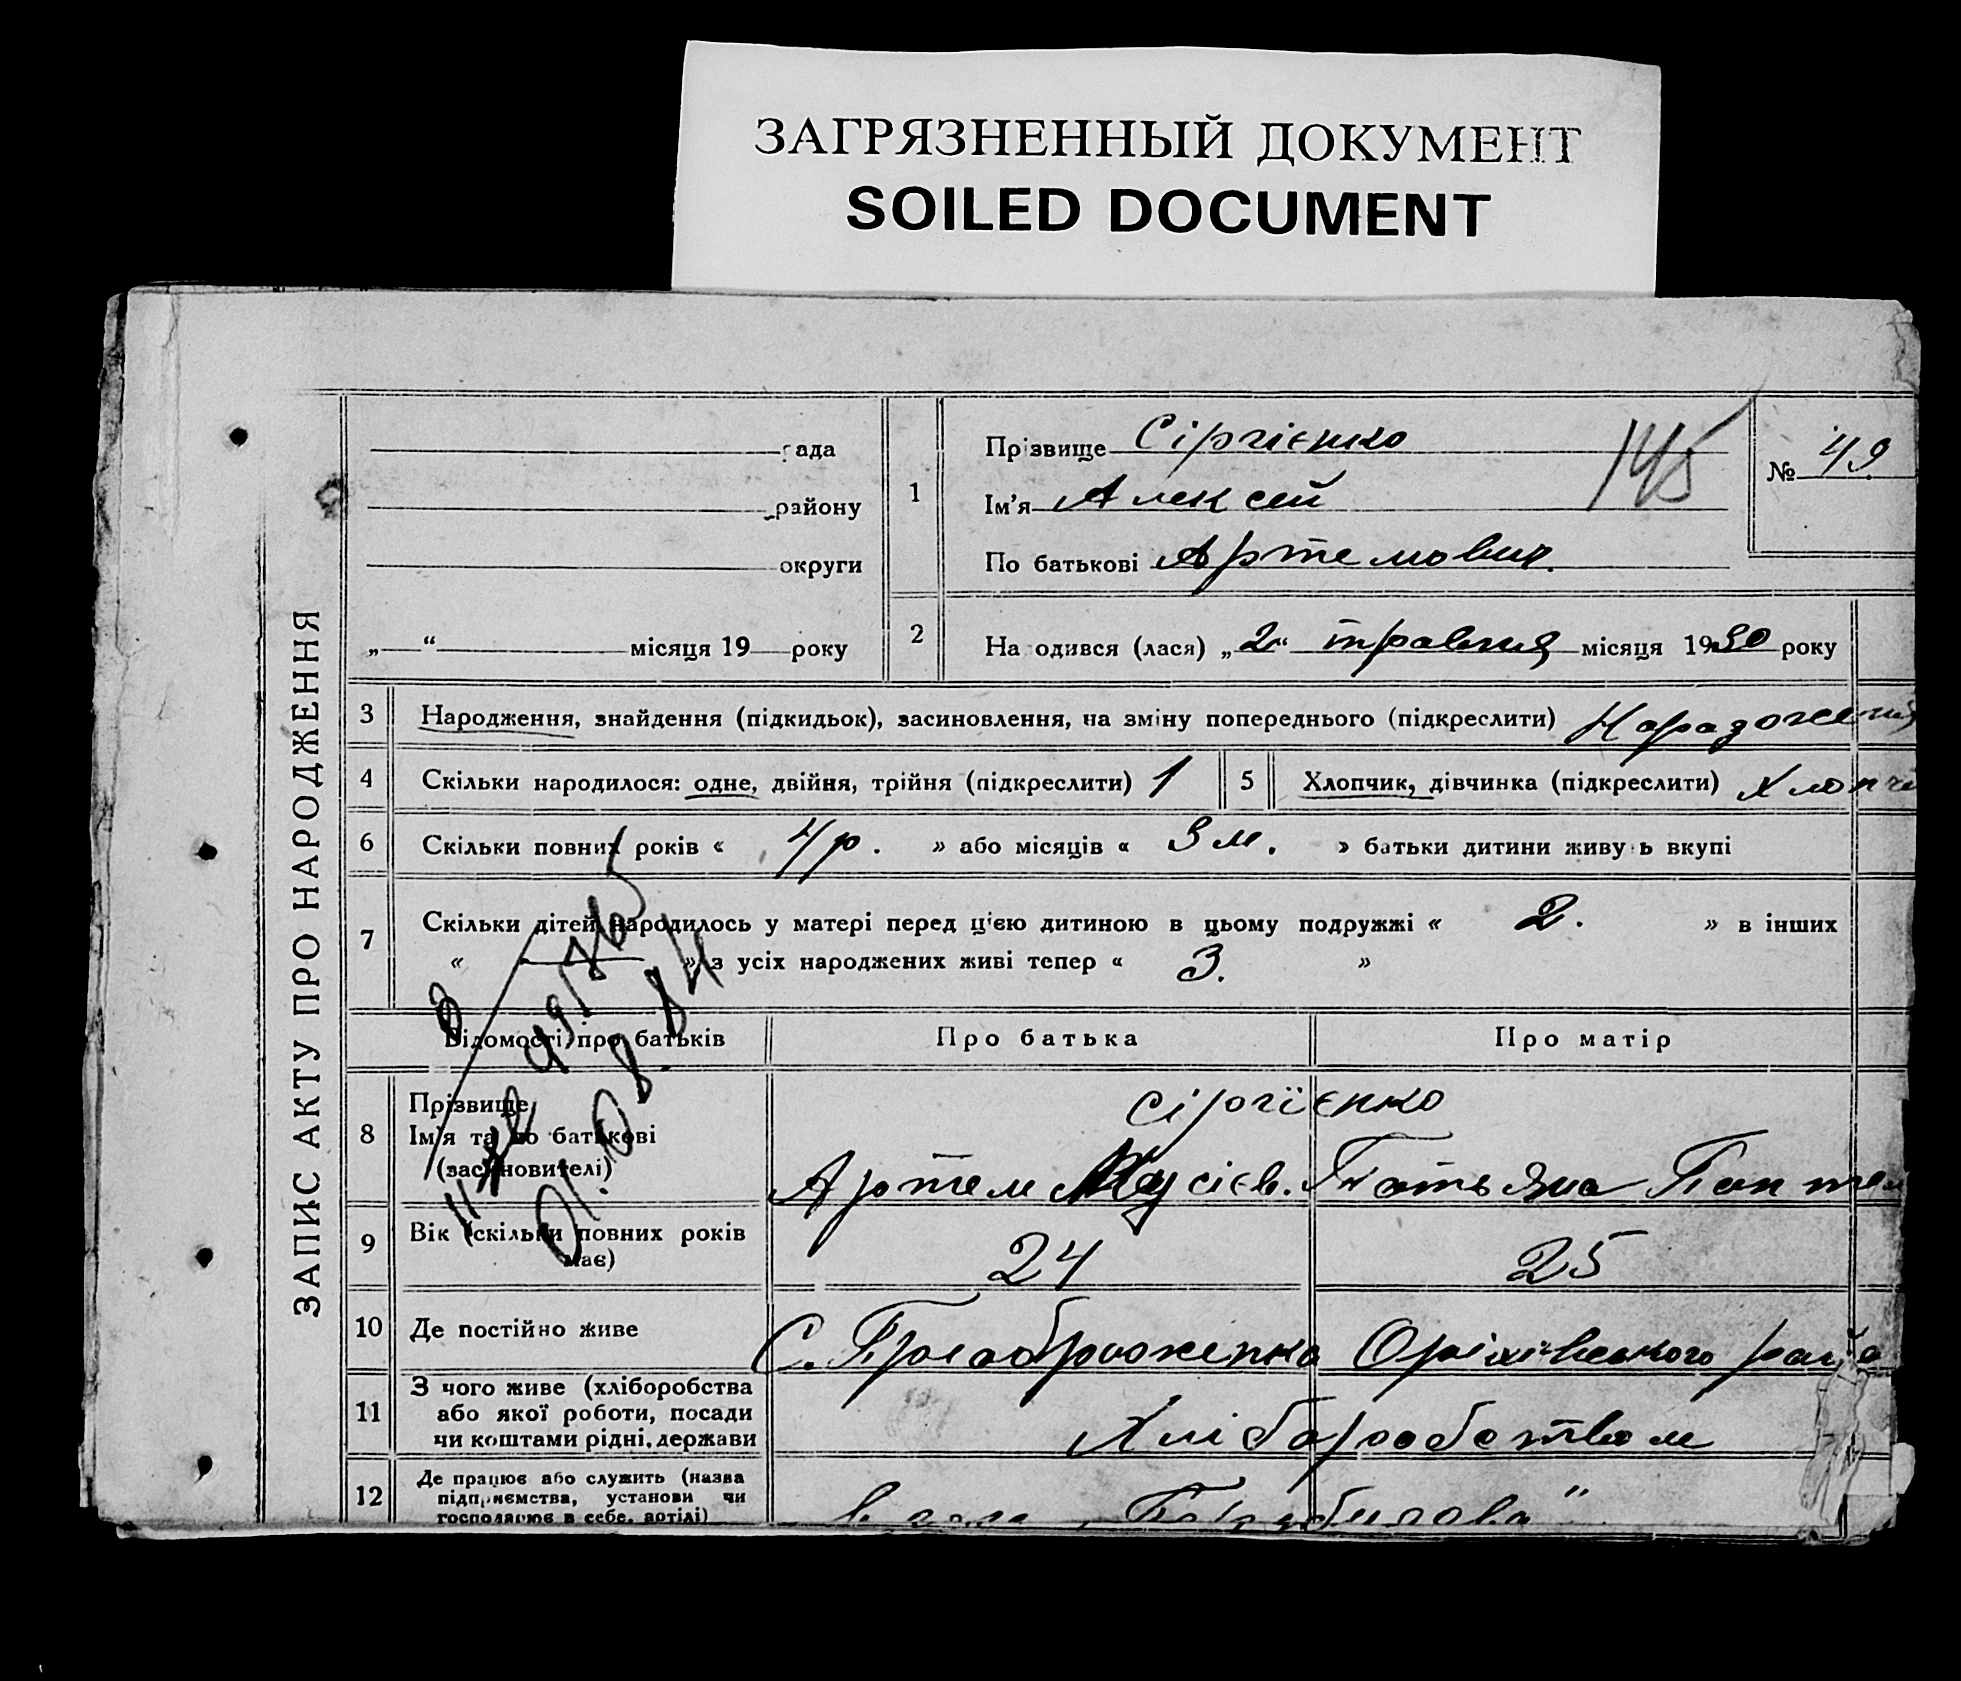 ЗАГРЯЗНЕННЫЙ ДОКУМЕНТ
SOILED DOCUMENT
ЗАПИС АКТУ ПРО НАРОДЖЕННЯ
рада
району
округи
„ “ місяця 19 року
1
Прізвище Сіргієнко
Ім’я Алексей
По батькові Артемович.
145
№ 49
2 На одився (лася) „2“ травня місяця 1930 року
3 Народження, знайдення (підкидьок), засиновлення, на зміну попереднього (підкреслити)
4 Скільки народилося: одне, двійня, трійня (підкреслити) 1
5 Хлопчик, дівчинка (підкреслити) Хлопчи
6 Скільки повних років « 4 р. » або місяців « 3 м. » батьки дитини живу ь вкупі
7 Скільки дітей народилось у матері перед цією дитиною в цьому подружжі « 2. » в інших
« — » з усіх народжених живі тепер « 3. »
Відомості про батьків Про батька Про матір
8 Прізвище
Ім’я та по батькові
(засиновителі)
Сіргієнко
Артем Мусієв. Татьяна Пантел
9 Вік (скільки повних років
має)
24 25
10 Де постійно живе С. Оріхівського
11 З чого живе (хліборобства
або якої роботи, посади
чи коштами рідні, держави
Хліборобством
12 Де працює або служить (назва
підприємства, установи чи
господарює в себе, артілі)